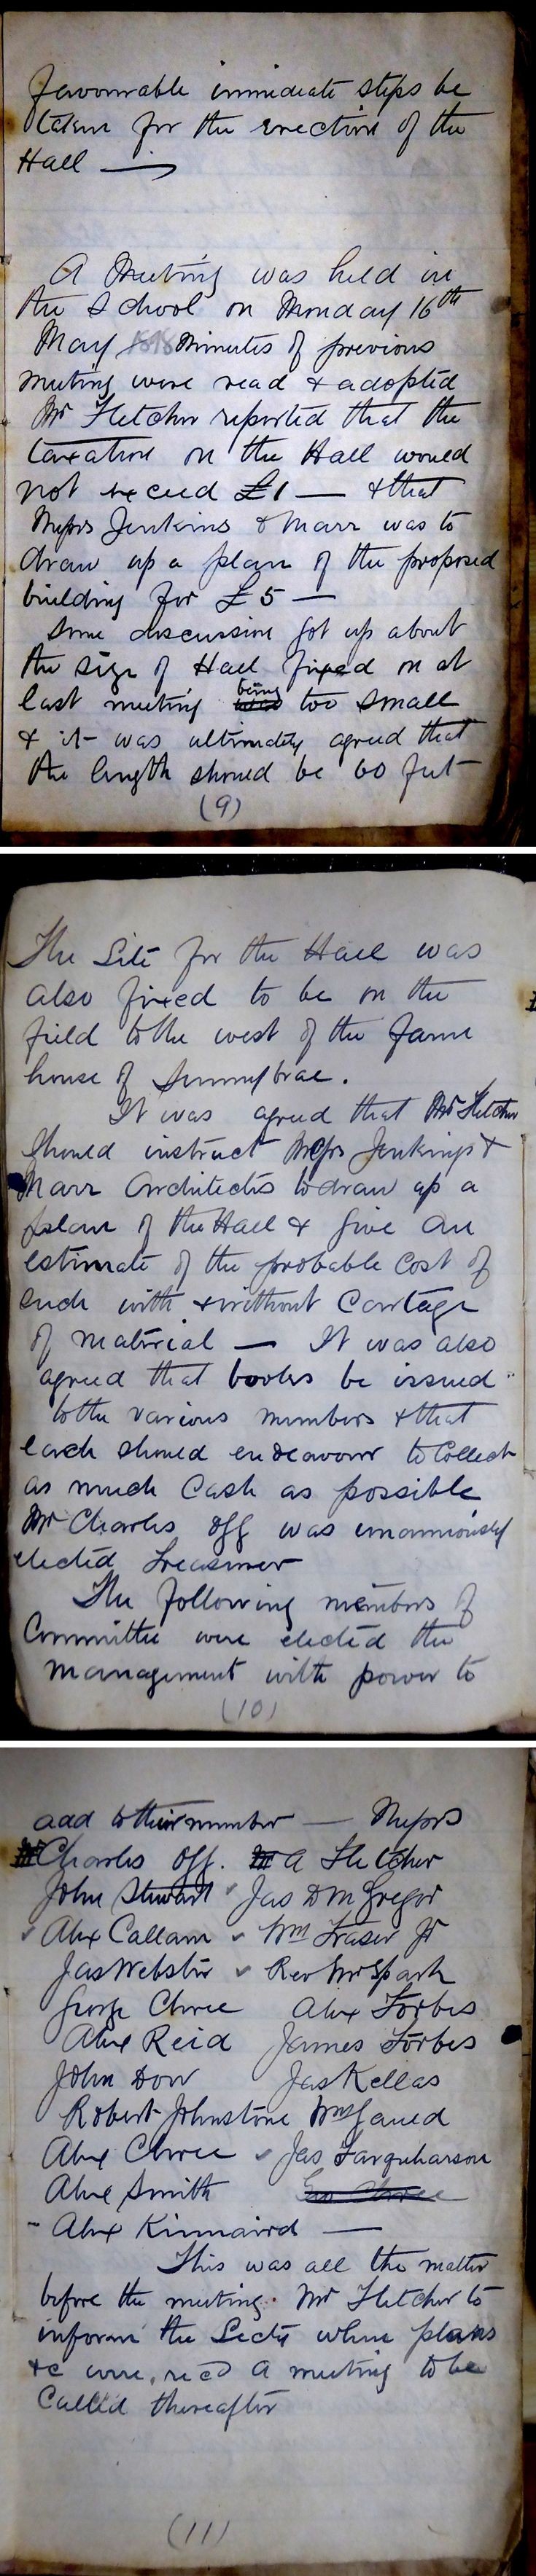 favourable immediate steps be
taken for the erection of the
Hall —
A Meeting was held in
the School on Monday 16th
May 1898 Minutes of previous
meeting were read & adopted
Mr Fletcher reported that the
taxation on the Hall would
not exceed £1 — & that
Messrs Jenkins & Marr was to
draw up a plan of the proposed
building for £5 —
Some discussion got up about
the size of Hall fixed on at
being
last meeting was too small
& it was ultimately agreed that
the length should be 60 feet
(9)
The Site for the Hall was
also fixed to be on the
field to the west of the farm
house of Sunnybrae.
It was agreed that Mr Fletcher
should instruct Messrs Jenkins &
Marr Architects to draw up a
plan of the Hall & give an
estimate of the probable cost of
such with & without Cartage
of material — It was also
agreed that books be issued
to the various members & that
each should endeavour to Collect
as much Cash as possible
Mr Charles Off was unanimously
elected Treasurer
The following members of
Committee were elected the
management with power to
(10)
add to their number — Messrs
Charles Off. A Fletcher
John Stewart Jas D McGregor
Alex Callam Wm Fraser Jr
Jas Webster Rev Mr Spark
George Chree Alex Forbes
Alex Reid James Forbes
John Dow Jas Kellas
Robert Johnstone Wm
Alex Chree Jas Farquharson
Alex Smith Geo Chree
Alex Kinnaird —
This was all the matter
before the meeting. Mr Fletcher to
inform the Secty when plans
&c were recd a meeting to be
Called thereafter
(11)